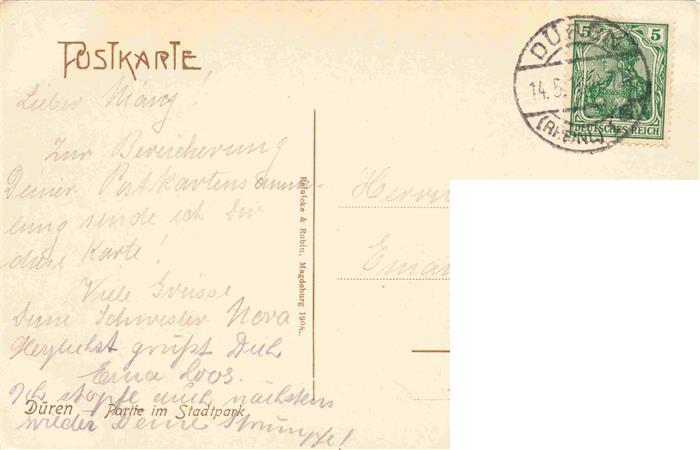 POSTKARTE
Lieber Many!
Zur Bereicherung
Deiner Postkartensamm-
lung sende ich Dir
diese Karte!
Viele Grüsse
Deine Schwester Nora
Herzlichst grüßt Dich
Erna Loos.
Ich stopfe auch nächstens
wieder Deine Strümpfe!
Düren Partie im Stadtpark
Reinicke & Rubin, Magdeburg 1908.
DÜREN
14.5.
(RHEINL)
5 5
DEUTSCHES REICH
Herrn